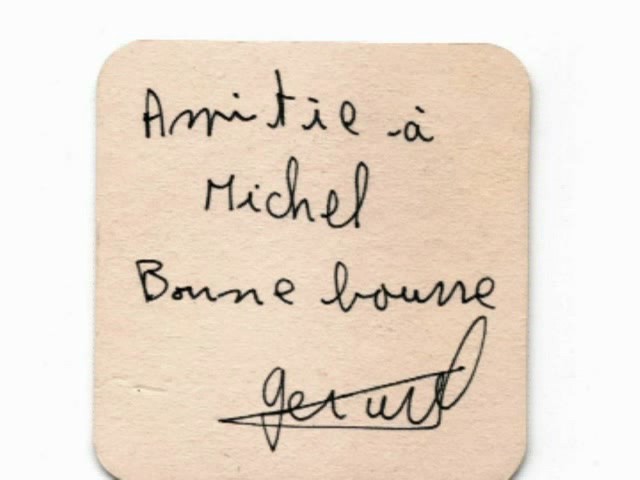 Amitie à
Michel
Bonne bourre
gerard